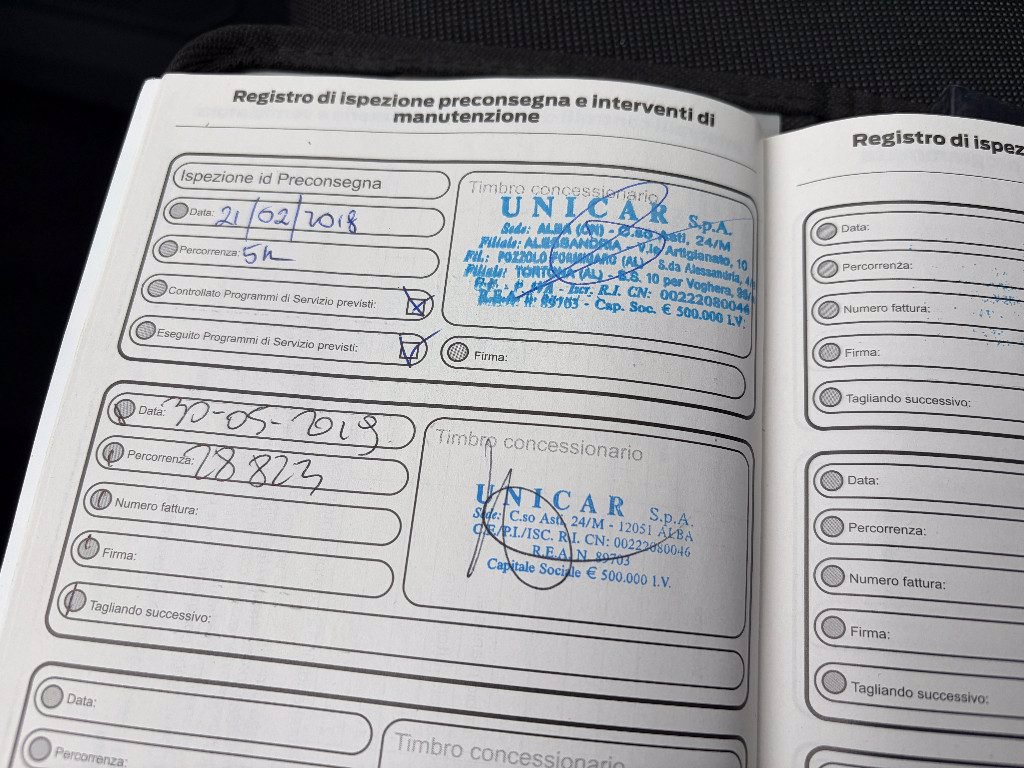 Registro di ispezione preconsegna e interventi di
manutenzione
Ispezione id Preconsegna
Data: 21/02/2018
Percorrenza:
Controllato Programmi di Servizio previsti:
Eseguito Programmi di Servizio previsti:
Timbro concessionario
UNICAR S.p.A.
Sede: ALBA (CN) - C.so Asti, 24/M
Filiale: ALESSANDRIA - V.le Artigianato, 10
FIL.: POZZOLO FORMIGARO (AL) - S.da Alessandria,
Filiale: TORTONA (AL) - S.S. 10 per Voghera,
Iscr. R.I. CN: 00222080046
R.E.A. N. 89703 - Cap. Soc. € 500.000 I.V.
Firma:
Data: 30-05-2019
Percorrenza: 28823
Numero fattura:
Firma:
Tagliando successivo:
Timbro concessionario
UNICAR S.p.A.
Sede: C.so Asti, 24/M - 12051 ALBA
C.F./P.I./ISC. R.I. CN: 00222080046
R.E.A. N. 89703
Capitale Sociale € 500.000 I.V.
Data:
Percorrenza:
Timbro concessionario
Registro di ispez
Data:
Percorrenza:
Numero fattura:
Firma:
Tagliando successivo:
Data:
Percorrenza:
Numero fattura:
Firma:
Tagliando successivo: